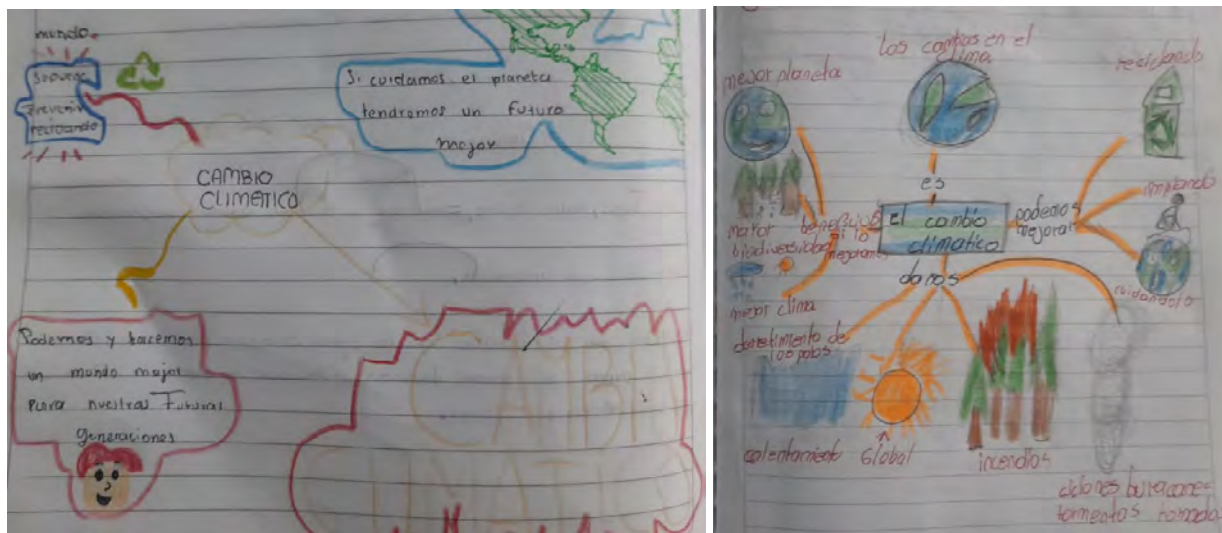 mundo.
Separar
Prevenir
reciclando
Si cuidamos el planeta
tendremos un futuro
mejor
CAMBIO
CLIMATICO
Podemos y hacemos
un mundo mejor
para nuestras Futuras
generaciones
CAMBI
CLIMATICO
Los cambios en el
clima
mejor planeta
reciclando
es
limpiando
el cambio
climatico
podemos
mejorar
beneficios
si lo
mejoramos
mayor
biodiversidad
cuidandolo
daños
mejor clima
derretimiento de
los polos
calentamiento Global
incendios
ciclones huracanes
tormentas tornado